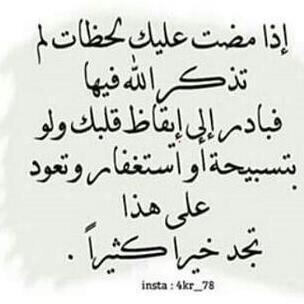 إذا مضت عليك لحظات لم
تذكر الله فيها
فبادر إلى إيقاظ قلبك ولو
بتسبيحة أو استغفار وتعود
على هذا
تجد خيرا كثيراً .
insta : 4kr_78